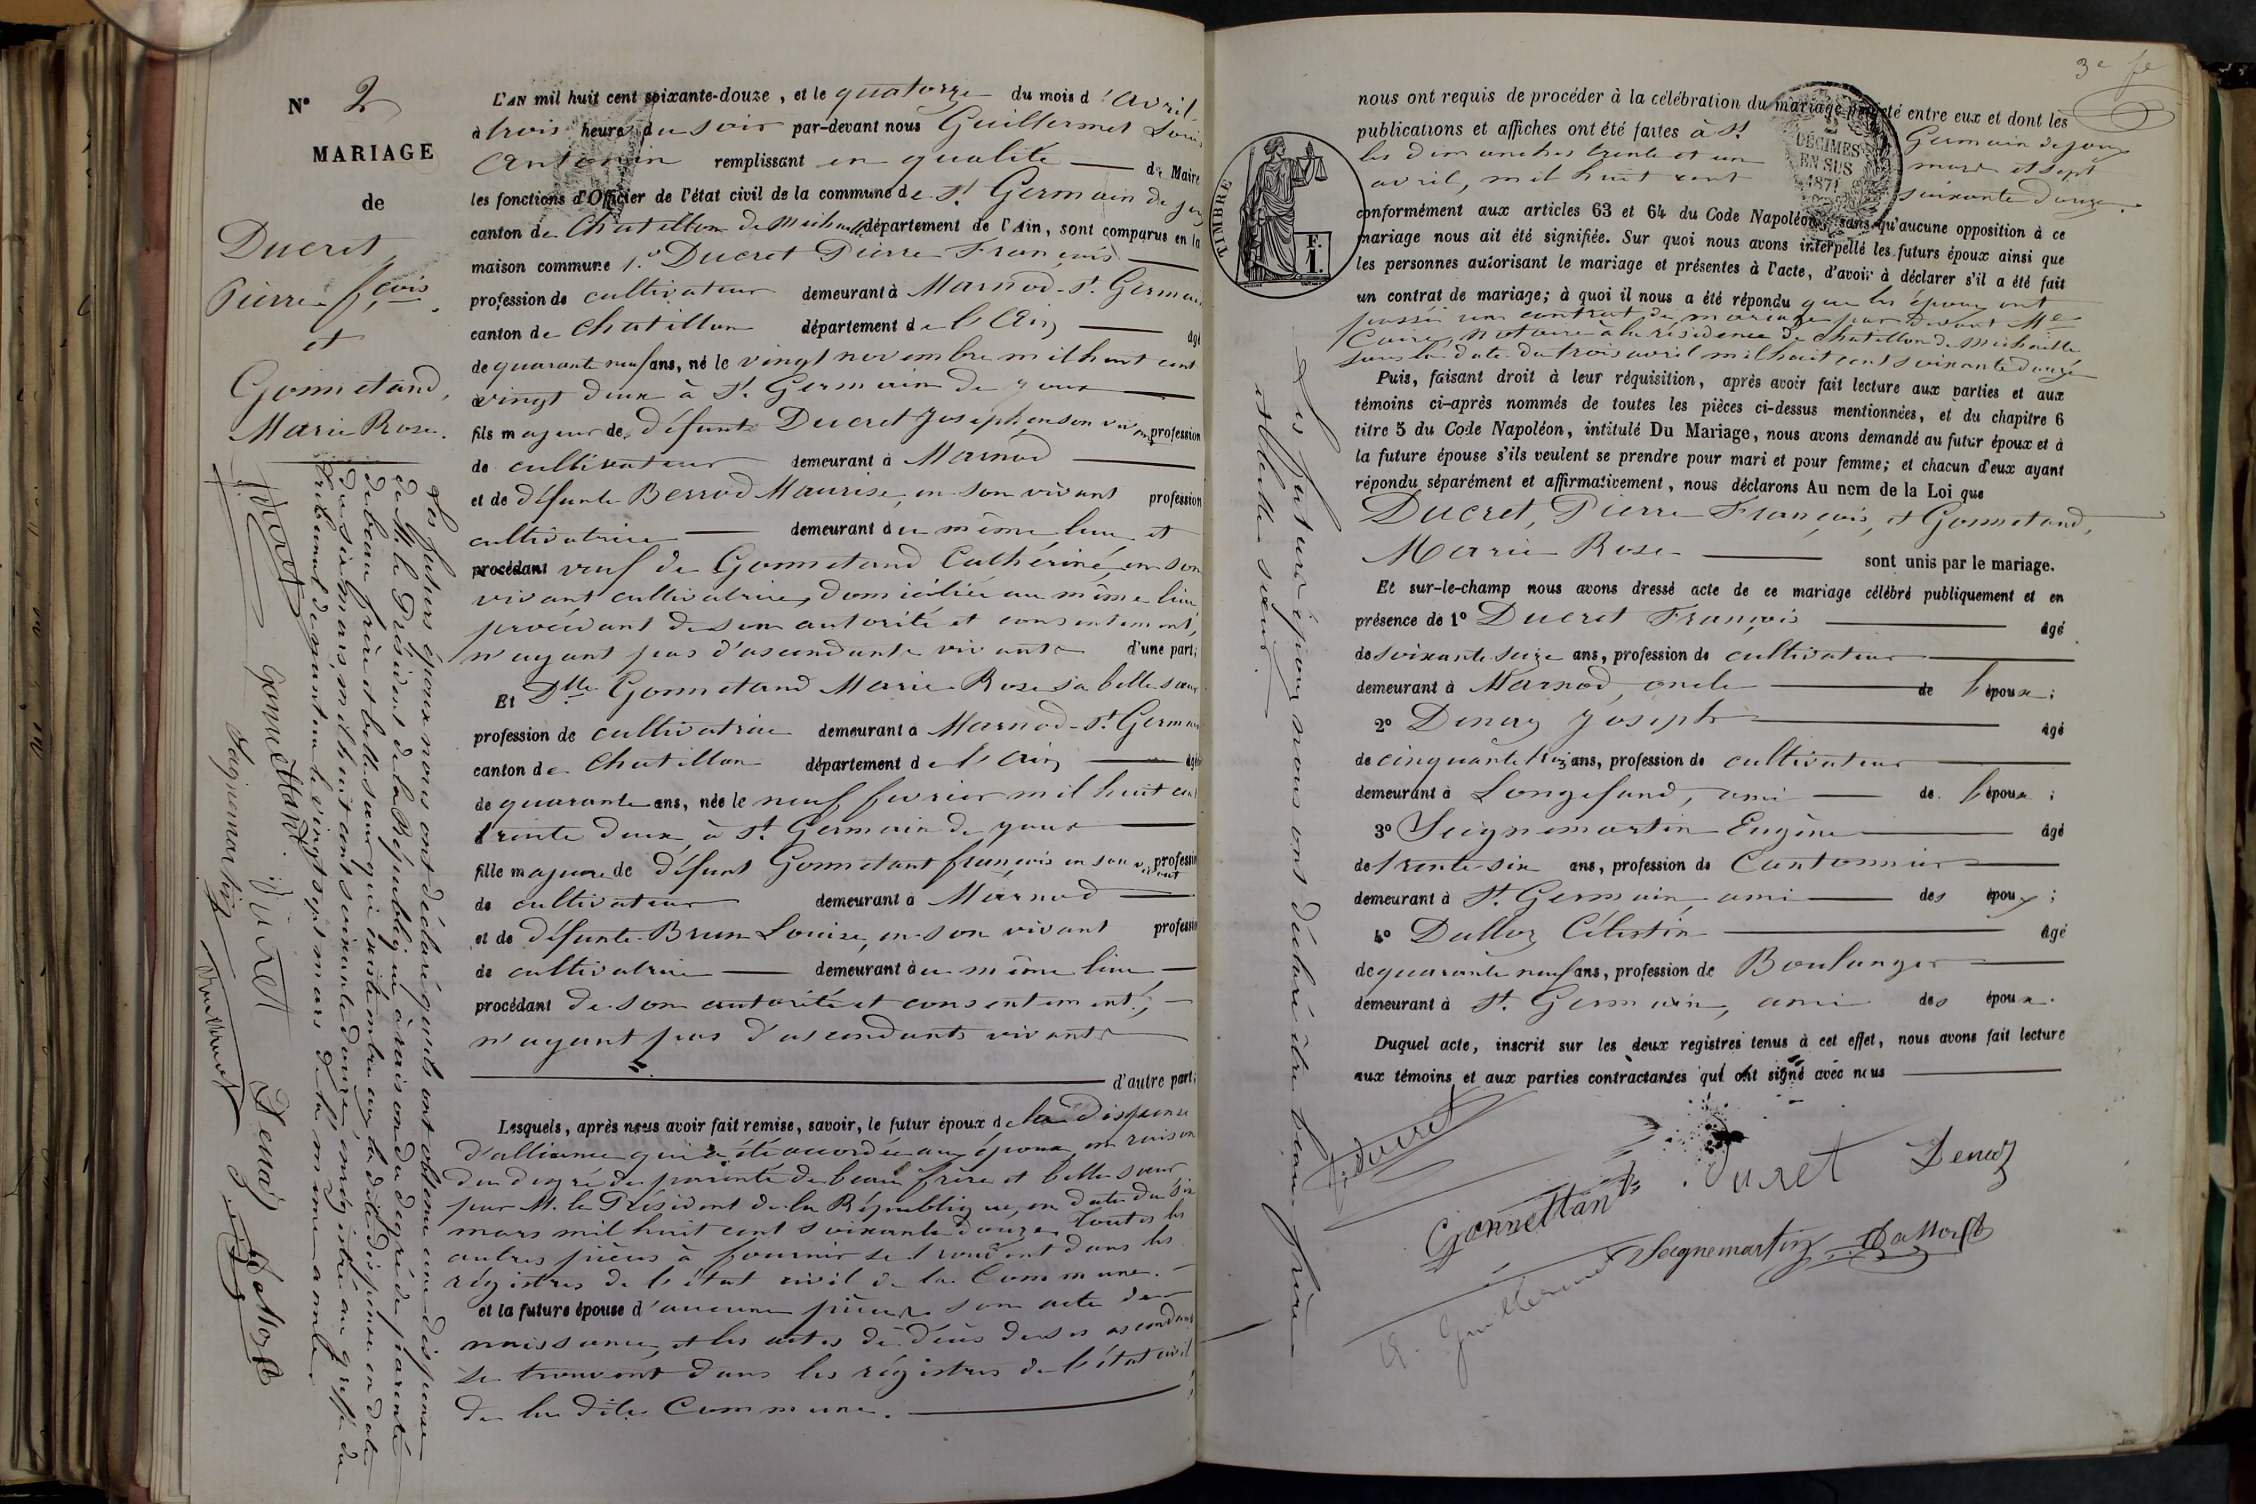 N° 2
MARIAGE
de
Ducret
Pierre fçois
et
Gonnetand,
Marie Rose.
L'AN mil huit cent soixante-douze, et le quatorze du mois d'avril
à trois heures du soir par-devant nous Guillermet Louis
Antonin remplissant en qualité de Maire
les fonctions d'Officier de l'état civil de la commune de St Germain de joux
canton de Chatillon de Michaille département de l'Ain, sont comparus en la
maison commune 1.° Ducret Pierre François
profession de cultivateur demeurant à Marnod-St. Germain
canton de Chatillon département de l'Ain âgé
de quarante neuf ans, né le vingt novembre mil huit cent
vingt deux à St. Germain de joux
fils majeur de défunt Ducret Joseph en son vivant profession
de cultivateur demeurant à Marnod
et de défunte Berrod Maurise, en son vivant profession
cultivatrice demeurant au même lieu et
procédant veuf de Gonnetand Cathérine, en son
vivant cultivatrice, domiciliée au même lieu,
procédant de son autorité et consentement,
n'ayant pas d'ascendants vivants d'une part;
Et Dlle Gonnetand Marie Rose sa belle soeur
profession de cultivatrice demeurant à Marnod-St Germain
canton de Chatillon département de l'Ain âgée
de quarante ans, née le neuf fevrier mil huit cent
trente deux, à St. Germain de joux
fille majeure de défunt Gonnetant françois en son vivant profession
de cultivateur demeurant à Marnod
et de défunte Brun Louise, en son vivant profession
de cultivatrice demeurant au même lieu
procédant de son autorité et consentement,
n'ayant pas d'ascendants vivants
d'autre part;
Lesquels, après nous avoir fait remise, savoir, le futur époux de la Dispense
d'alliance qui a été accordée aux époux, en raison
du degré de parenté de beau frère et belle soeur
par M. le Président de la République, en date du six
mars mil huit cent soixante douze, toutes les
autres pièces à fournir se trouvent dans les
régistres de l'état civil de la Commune.
et la future épouse d'aucune pièce, son acte de
naissance, et les actes de décès de ses ascendants
se trouvent dans les régistres de l'état civil
de la dite Commune.
Les futurs époux nous ont déclaré qu'ils ont obtenu une dispense
de M. le Président de la République à raison du degré de parenté
de beau frère et belle soeur qui existe entre eux, la dite dispense en date
du six mars, mil huit cent soixante douze, enrégistrée au greffe du
tribunal de nantua le vingt sept mars de la même année.
f. ducret Gonnettand. Juret Denaz Dalloz C
Sagnemartin Guillermet
3e fe
nous ont requis de procéder à la célébration du mariage projeté entre eux et dont les
publications et affiches ont été faites à St Germain de joux
les dimanches trente et un mars et sept
avril, mil huit cent soixante douze.
TIMBRE
F.
1.
2
DÉCIMES
EN SUS
1871
conformément aux articles 63 et 64 du Code Napoléon, sans qu'aucune opposition à ce
mariage nous ait été signifiée. Sur quoi nous avons interpellé les futurs époux ainsi que
les personnes autorisant le mariage et présentes à l'acte, d'avoir à déclarer s'il a été fait
un contrat de mariage; à quoi il nous a été répondu que les époux ont
passé un contrat de mariage par devant Me
notaire à la résidence de Chatillon de Michaille
sous la date du trois avril mil huit cent soixante douze
Puis, faisant droit à leur réquisition, après avoir fait lecture aux parties et aux
témoins ci-après nommés de toutes les pièces ci-dessus mentionnées, et du chapitre 6
titre 5 du Code Napoléon, intitulé Du Mariage, nous avons demandé au futur époux et à
la future épouse s'ils veulent se prendre pour mari et pour femme; et chacun d'eux ayant
répondu séparément et affirmativement, nous déclarons Au nom de la Loi que
Ducret, Pierre François, et Gonnetand,
Marie Rose sont unis par le mariage.
Et sur-le-champ nous avons dressé acte de ce mariage célébré publiquement et en
présence de 1° Ducret François âgé
de soixante seize ans, profession de cultivateur
demeurant à Marnod, oncle de l'époux;
2° Denaz Joseph âgé
de cinquante troiz ans, profession de cultivateur
demeurant à Longefand, ami de l'époux;
3° Seignemartin Eugène âgé
de trente six ans, profession de Cantonnier
demeurant à St. Germain, ami des époux;
4° Dalloz Célestin âgé
de quarante neuf ans, profession de Boulanger
demeurant à St. Germain, ami des époux.
Duquel acte, inscrit sur les deux registres tenus à cet effet, nous avons fait lecture
aux témoins et aux parties contractantes qui ont signé avec nous
f. ducret
Gonnettant Juret Denaz
Sagnemartin Dalloz C
A. Guillermet
Les futurs époux nous ont déclaré être beau frère
et belle soeur.